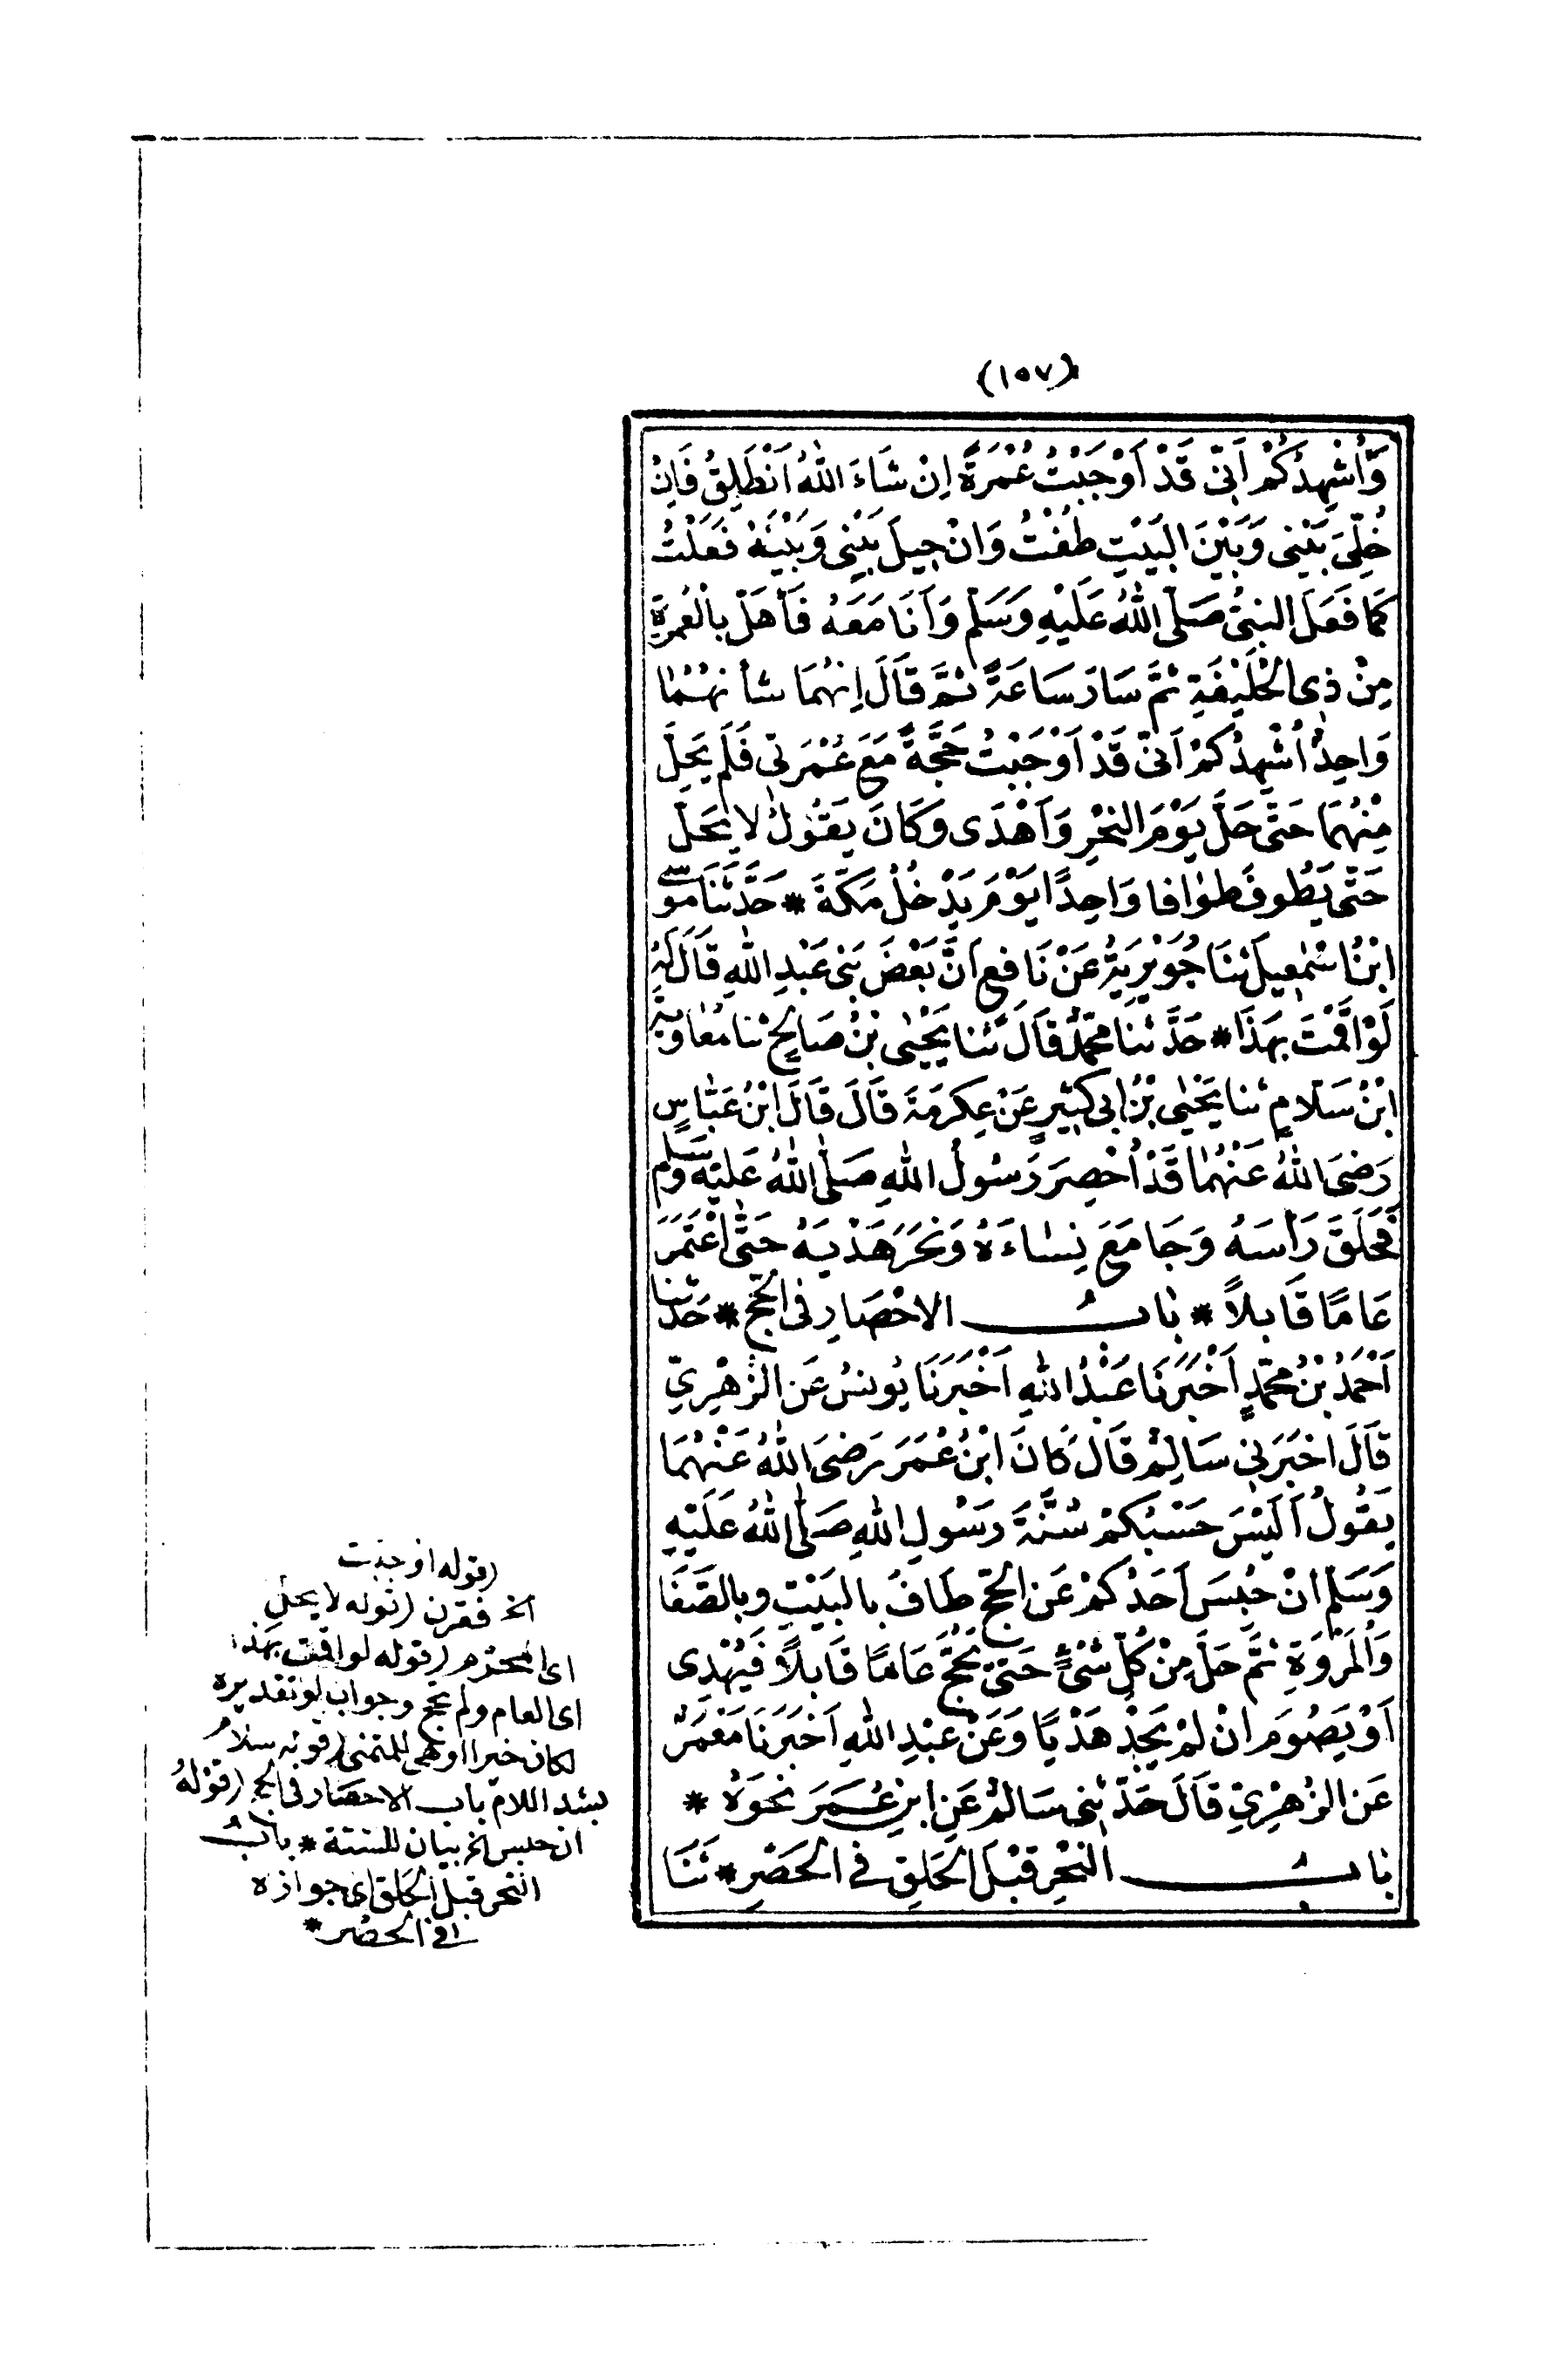 (١٥٧)
وَأُشْهِدُكُمْ أَنِّي قَدْ أَوْجَبْتُ عُمْرَةً إِنْ شَاءَ اللهُ أَنْطَلِقُ فَإِنْ
خُلِّيَ بَيْنِي وَبَيْنَ الْبَيْتِ طُفْتُ وَإِنْ حِيلَ بَيْنِي وَبَيْنَهُ فَعَلْتُ
كَمَا فَعَلَ النَّبِيُّ صَلَّى اللهُ عَلَيْهِ وَسَلَّمَ وَأَنَا مَعَهُ فَأَهَلَّ بِالْعُمْرَةِ
مِنْ ذِي الْحُلَيْفَةِ ثُمَّ سَارَ سَاعَةً ثُمَّ قَالَ إِنَّمَا شَأْنُهُمَا
وَاحِدٌ أُشْهِدُكُمْ أَنِّي قَدْ أَوْجَبْتُ حَجَّةً مَعَ عُمْرَتِي فَلَمْ يَحِلَّ
مِنْهُمَا حَتَّى حَلَّ يَوْمَ النَّحْرِ وَأَهْدَى وَكَانَ يَقُولُ لَا يَحِلُّ
حَتَّى يَطُوفَ طَوَافًا وَاحِدًا يَوْمَ يَدْخُلُ مَكَّةَ * حَدَّثَنَا مُوسَى
ابْنُ إِسْمٰعِيلَ ثَنَا جُوَيْرِيَةُ عَنْ نَافِعٍ أَنَّ بَعْضَ بَنِي عَبْدِ اللهِ قَالَ لَهُ
لَوْ أَقَمْتَ بِهَذَا * حَدَّثَنَا مُحَمَّدٌ قَالَ ثَنَا يَحْيَى بْنُ صَالِحٍ ثَنَا مُعَاوِيَةُ
ابْنُ سَلَّامٍ ثَنَا يَحْيَى بْنُ أَبِي كَثِيرٍ عَنْ عِكْرِمَةَ قَالَ قَالَ ابْنُ عَبَّاسٍ
رَضِيَ اللهُ عَنْهُمَا قَدْ أُحْصِرَ رَسُولُ اللهِ صَلَّى اللهُ عَلَيْهِ وَسَلَّمَ
فَحَلَقَ رَأْسَهُ وَجَامَعَ نِسَاءَهُ وَنَحَرَ هَدْيَهُ حَتَّى اعْتَمَرَ
عَامًا قَابِلًا * بَابُ الْإِحْصَارِ فِي الْحَجِّ * حَدَّثَنَا
أَحْمَدُ بْنُ مُحَمَّدٍ أَخْبَرَنَا عَبْدُ اللهِ أَخْبَرَنَا يُونُسُ عَنِ الزُّهْرِيِّ
قَالَ أَخْبَرَنِي سَالِمٌ قَالَ كَانَ ابْنُ عُمَرَ رَضِيَ اللهُ عَنْهُمَا
يَقُولُ أَلَيْسَ حَسْبُكُمْ سُنَّةَ رَسُولِ اللهِ صَلَّى اللهُ عَلَيْهِ
وَسَلَّمَ إِنْ حُبِسَ أَحَدُكُمْ عَنِ الْحَجِّ طَافَ بِالْبَيْتِ وَبِالصَّفَا
وَالْمَرْوَةِ ثُمَّ حَلَّ مِنْ كُلِّ شَيْءٍ حَتَّى يَحُجَّ عَامًا قَابِلًا فَيُهْدِي
أَوْ يَصُومَ إِنْ لَمْ يَجِدْ هَدْيًا وَعَنْ عَبْدِ اللهِ أَخْبَرَنَا مَعْمَرٌ
عَنِ الزُّهْرِيِّ قَالَ حَدَّثَنِي سَالِمٌ عَنِ ابْنِ عُمَرَ نَحْوَهُ *
بَابُ النَّحْرِ قَبْلَ الْحَلْقِ فِي الْحَصْرِ * ثَنَا
(قوله اوجبت
الخ فقرن (قوله لا يحل
اى المحرم (قوله لو اقمت بهذا
اى العام ولم تحج وجواب لو تقديره
لكان خيرا او هى للتمنى (قوله سلام
بشد اللام باب الاحصار فى الحج (قوله
ان حبس الخ بيان للسنة * باب
النحر قبل الحلق اى جوازه
فى الحصر *